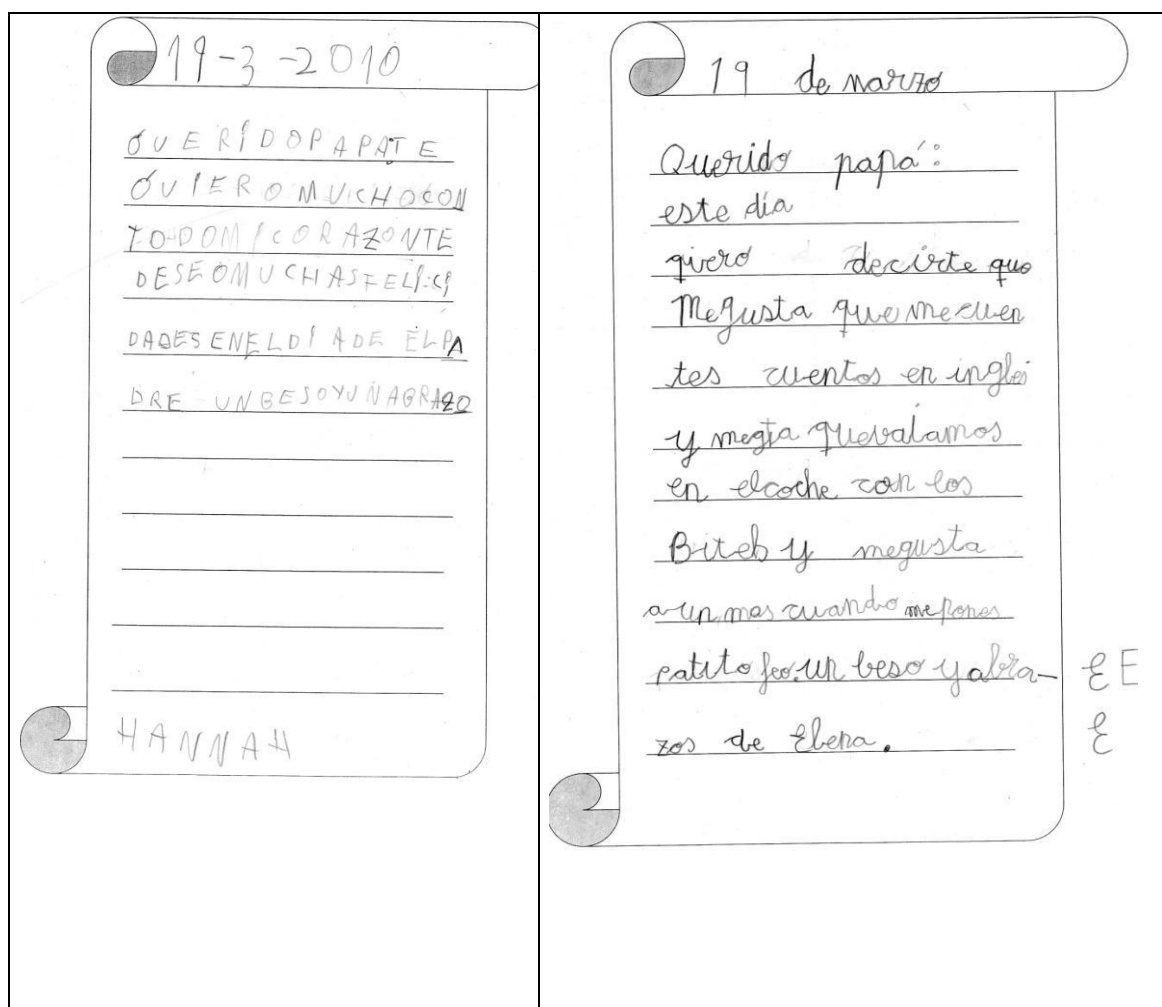 19-3-2010
QUERIDOPAPATE
QUIEROMUCHOCON
TODOMICORAZONTE
DESEOMUCHASFELICI
DADESENELDÍADEELPA
DRE UNBESOYUNAGRAZO
HANNAH
19 de marzo
Querido papá:
este día
qiero decirte que
Megusta que mecuen
tes cuentos en inglés
y megta quevalamos
en elcoche con los
Bitels y megusta
aun mas cuando mepones
patito feo. un beso y abra-
zos de Elena.
E E
E